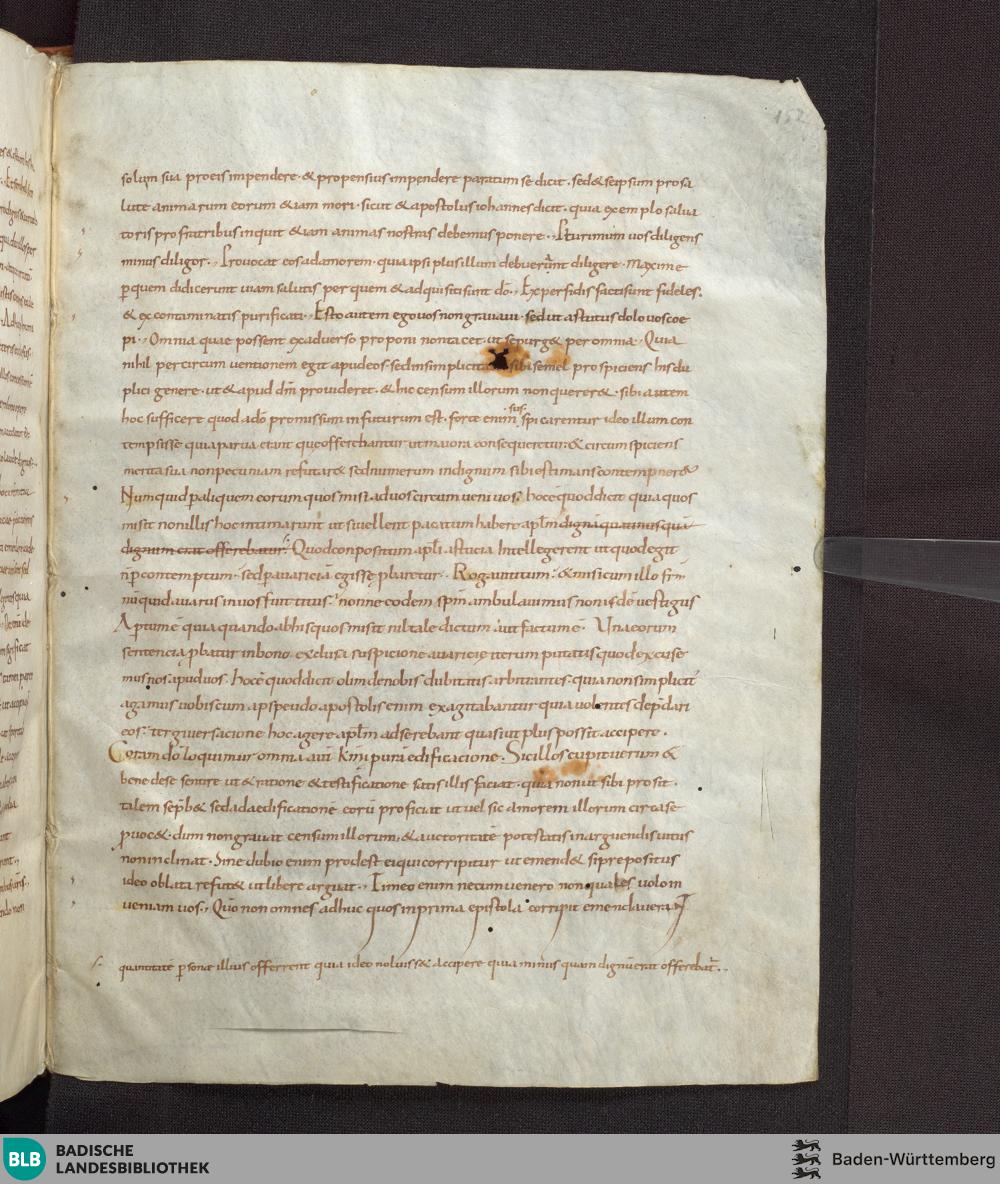 152
solum sua pro eis impendere · & propensius impendere paratum se dicit · sed & seipsum pro sa
lute animarum eorum & iam mori · sicut & apostolus iohannes dicit · quia exemplo salua
toris pro fratribus inquit & iam animas nostras debemus ponere · Plurimum uos diligens
minus diligor · Prouocat eos ad amorem · quia ipsi plus illum debuerunt diligere · maxime
p quem didicerunt uiam salutis per quem & adquisiti sunt dō · Ex perfidis facti sunt fideles ·
& ex contaminatis purificati · Esto autem ego uos non grauaui · sed ut astutus dolo uos coe
pi · Omnia quae possent ex aduerso proponi non tacet · ut se purg& per omnia · Quia
nihil per circumuentionem egit apud eos · sed in simplicita sibi semel prospiciens his du
plici genere · ut & apud dm prouideret · & hic censum illorum non querer& · sibi autem
hoc sufficere quod a dō promissum in futurum est · forte enim sus spicarentur ideo illum con
tempsisse quia parua erant que offerebantur ut maiora consequeretur · & circumspiciens
merita sua non pecuniam refutar& sed numerum indignum sibi estimans contempner&
Numquid p aliquem eorum quos misi ad uos circumueni uos · hoc ē quod dicit quia quos
misit non illis hoc intimarunt ut si uellent pacatum habere aplm digna quam usqui
dignum erat offerebatur · Quod conpositum apli astucia intellegerent ut quod egit
n p contemptum · sed p auariciā egisseplaretur · Rogaui titum · & misi cum illo frm
nūquid auarus in uos fuit titus · nonne eodem spū ambulauimus non isdē uestigiis
Aptum ē quia quando ab his quos misit nil tale dictum aut factum ē · Una eorum
sentencia pbatur in bono · exclusa suspicione auaricie iterum putatis quod excuse
mus nos apud uos · hoc ē quod dicit olim de nobis dubitatis arbitrantes · quia non simplicit
agamus uobiscum a pseudoapostolis enim exagitabantur quia uolentes depdari
eos · tergiuersacione hoc agere aplm adserebant quasi ut plus possit accipere ·
Coram dō loquimur omnia aut kmi p uri edificacione · Sic illos cupit uerum &
bene de se sentire ut & ratione & testificatione satis illis faciat · quia non ut sibi prosit ·
talem se phb& sed ad aedificationē corū proficiat ut uel sic amorem illorum circa se
puoc& · dum non grauat censum illorum · & auctoritatē potestatis in arguendis uitiis
non inclinat · Sine dubio enim prodest ei qui corripitur ut emend& si prepositus
ideo oblata refut& ut libere arguat · Timeo enim ne cum uenero non quales uolo in
ueniam uos · Quō non omnes adhuc quos in prima epistola corripit emendauerant
quantitatē psonae illius offerrent quia ideo noluiss& accipere quia minus quam dignū erat offerebat ·
BLB
BADISCHE
LANDESBIBLIOTHEK
Baden-Württemberg